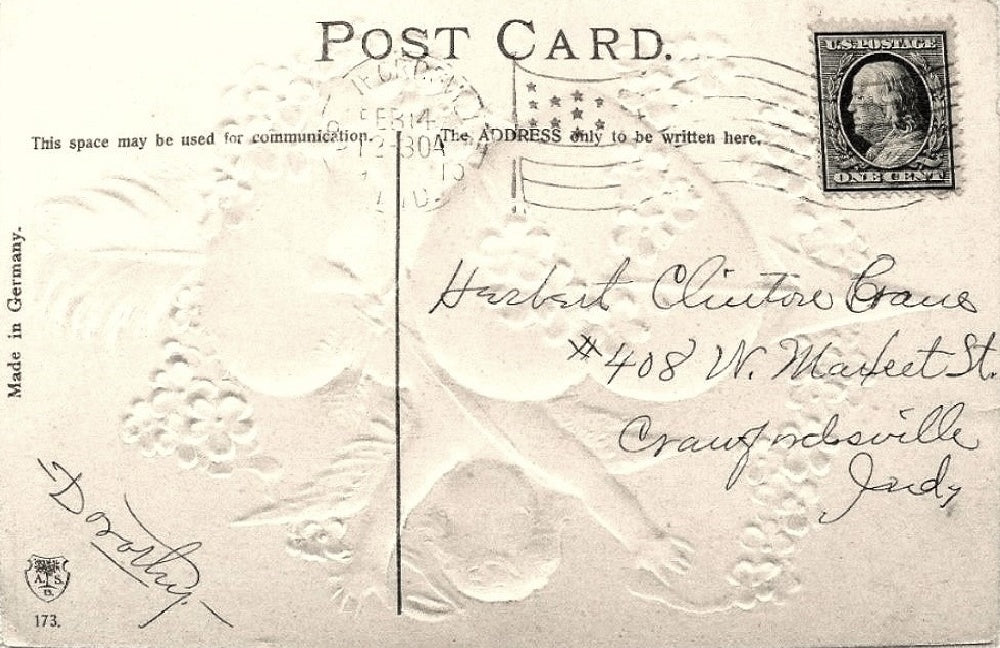 POST CARD.
U.S. POSTAGE
ONE CENT
FEB 14
2-30 A
This space may be used for communication.
The ADDRESS only to be written here.
Made in Germany.
Herbert Clinton Crane
#408 W. Market St.
Crawfordsville
Indy
Dorothy.
A. S.
B.
173.